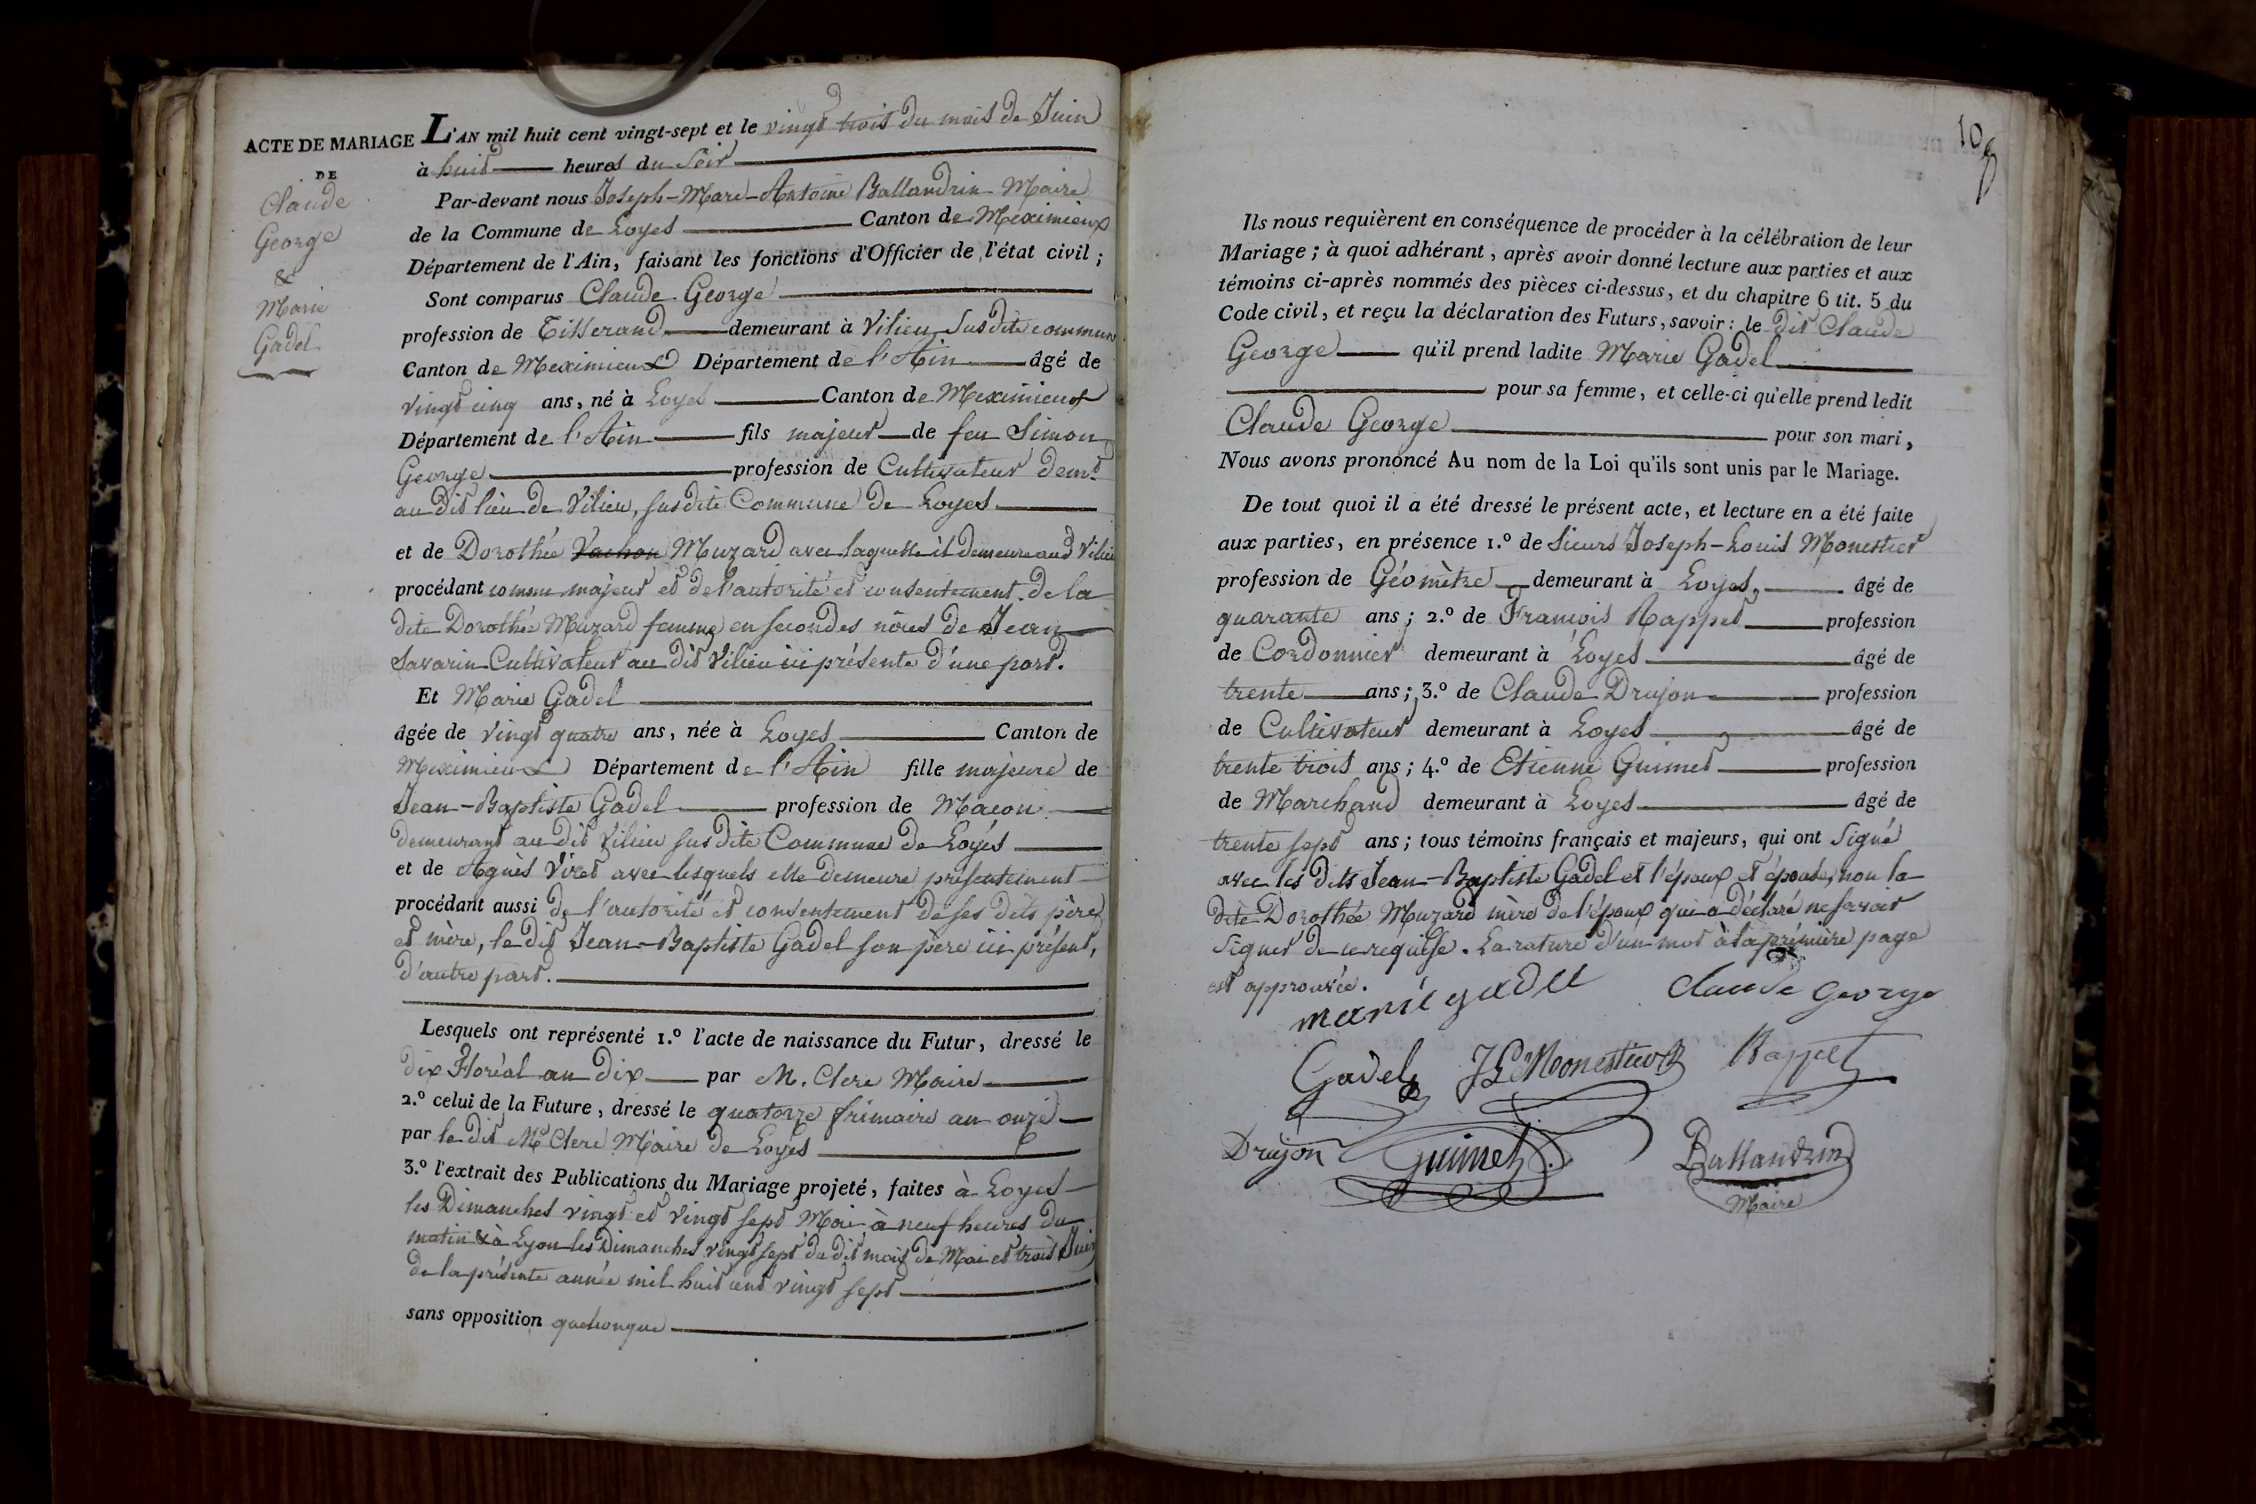 ACTE DE MARIAGE
DE
Claude
George
&
Marie
Gadel
L'AN mil huit cent vingt-sept et le vingt trois du mois de Juin
à huit heures du Soir
Par-devant nous Joseph-Marie-Antoine Ballandrin Maire
de la Commune de Loyes Canton de Meximieux
Département de l'Ain, faisant les fonctions d'Officier de l'état civil ;
Sont comparus Claude George
profession de Tisserand demeurant à Vilieu Susdite commune
Canton de Meximieux Département de l'Ain âgé de
vingt cinq ans, né à Loyes Canton de Meximieux
Département de l'Ain fils majeur de feu Simon
George profession de Cultivateur demt
au dit lieu de Vilieu, susdite Commune de Loyes
et de Dorothée Vachon Muzard avec laquelle il demeure aud Vilieu
procédant comme majeur et de l'autorité et consentement de la
dite Dorothée Muzard femme en secondes nôces de Jean
Savarin Cultivateur au dit Vilieu ici présente d'une part.
Et Marie Gadel
âgée de vingt quatre ans, née à Loyes Canton de
Meximieux Département de l'Ain fille majeure de
Jean-Baptiste Gadel profession de Maçon
demeurant au dit Vilieu susdite Commune de Loyes
et de Agnès Viret avec lesquels elle demeure présentement
procédant aussi de l'autorité et consentement de ses dits père
et mère, le dit Jean-Baptiste Gadel son père ici présent,
d'autre part.
Lesquels ont représenté 1.º l'acte de naissance du Futur, dressé le
dix Floréal an dix par M. Clerc Maire
2.º celui de la Future, dressé le quatorze frimaire an onze
par le dit Mr Clerc Maire de Loyes
3.º l'extrait des Publications du Mariage projeté, faites à Loyes
les Dimanches vingt et vingt sept Mai à neuf heures du
matin & à Lyon les Dimanches vingt sept du dit mois de Mai et trois Juin
de la présente année mil huit cent vingt sept
sans opposition quelconque
108
Ils nous requièrent en conséquence de procéder à la célébration de leur
Mariage ; à quoi adhérant, après avoir donné lecture aux parties et aux
témoins ci-après nommés des pièces ci-dessus, et du chapitre 6 tit. 5 du
Code civil, et reçu la déclaration des Futurs, savoir : le dit Claude
George qu'il prend ladite Marie Gadel
pour sa femme, et celle-ci qu'elle prend ledit
Claude George pour son mari,
Nous avons prononcé Au nom de la Loi qu'ils sont unis par le Mariage.
De tout quoi il a été dressé le présent acte, et lecture en a été faite
aux parties, en présence 1.º de Sieurs Joseph-Louis Monestier
profession de Géomètre demeurant à Loyes, âgé de
quarante ans ; 2.º de François Rappet profession
de Cordonnier demeurant à Loyes âgé de
trente ans ; 3.º de Claude Drujon profession
de Cultivateur demeurant à Loyes âgé de
trente trois ans ; 4.º de Etienne Guimet profession
de Marchand demeurant à Loyes âgé de
trente sept ans ; tous témoins français et majeurs, qui ont Signé
avec les dits Jean-Baptiste Gadel et l'époux et épouse, non la
dite Dorothée Muzard mère de l'époux qui a déclaré ne savoir
Signer de ce requise. La rature d'un mot à la première page
est approuvée.
marie gadel Claude George
Gadel JL Monestier Rappet
Drujon Guimet Ballandrin
Maire